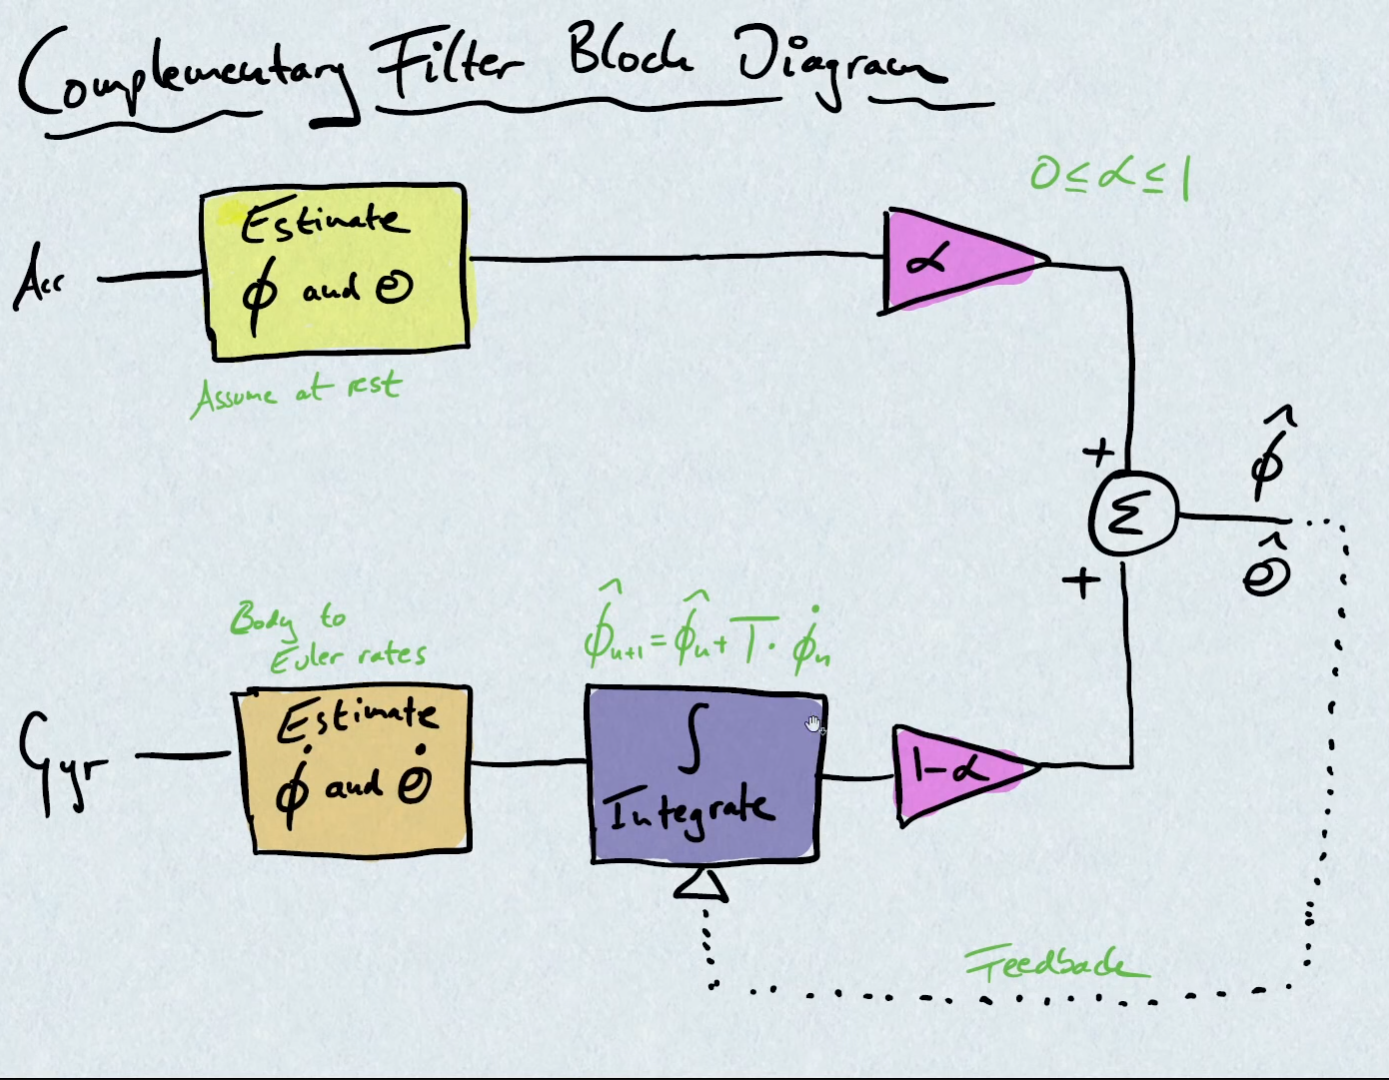 Complementary Filter Block Diagram
0 ≤ α ≤ 1
Acc
Estimate
ϕ and Θ
α
Assume at rest
+
ϕ̂
Σ
Θ̂
+
Body to
Euler rates
ϕ̂ₙ₊₁ = ϕ̂ₙ + T · ϕ̇ₙ
Gyr
Estimate
ϕ̇ and Θ̇
∫
Integrate
1-α
Feedback